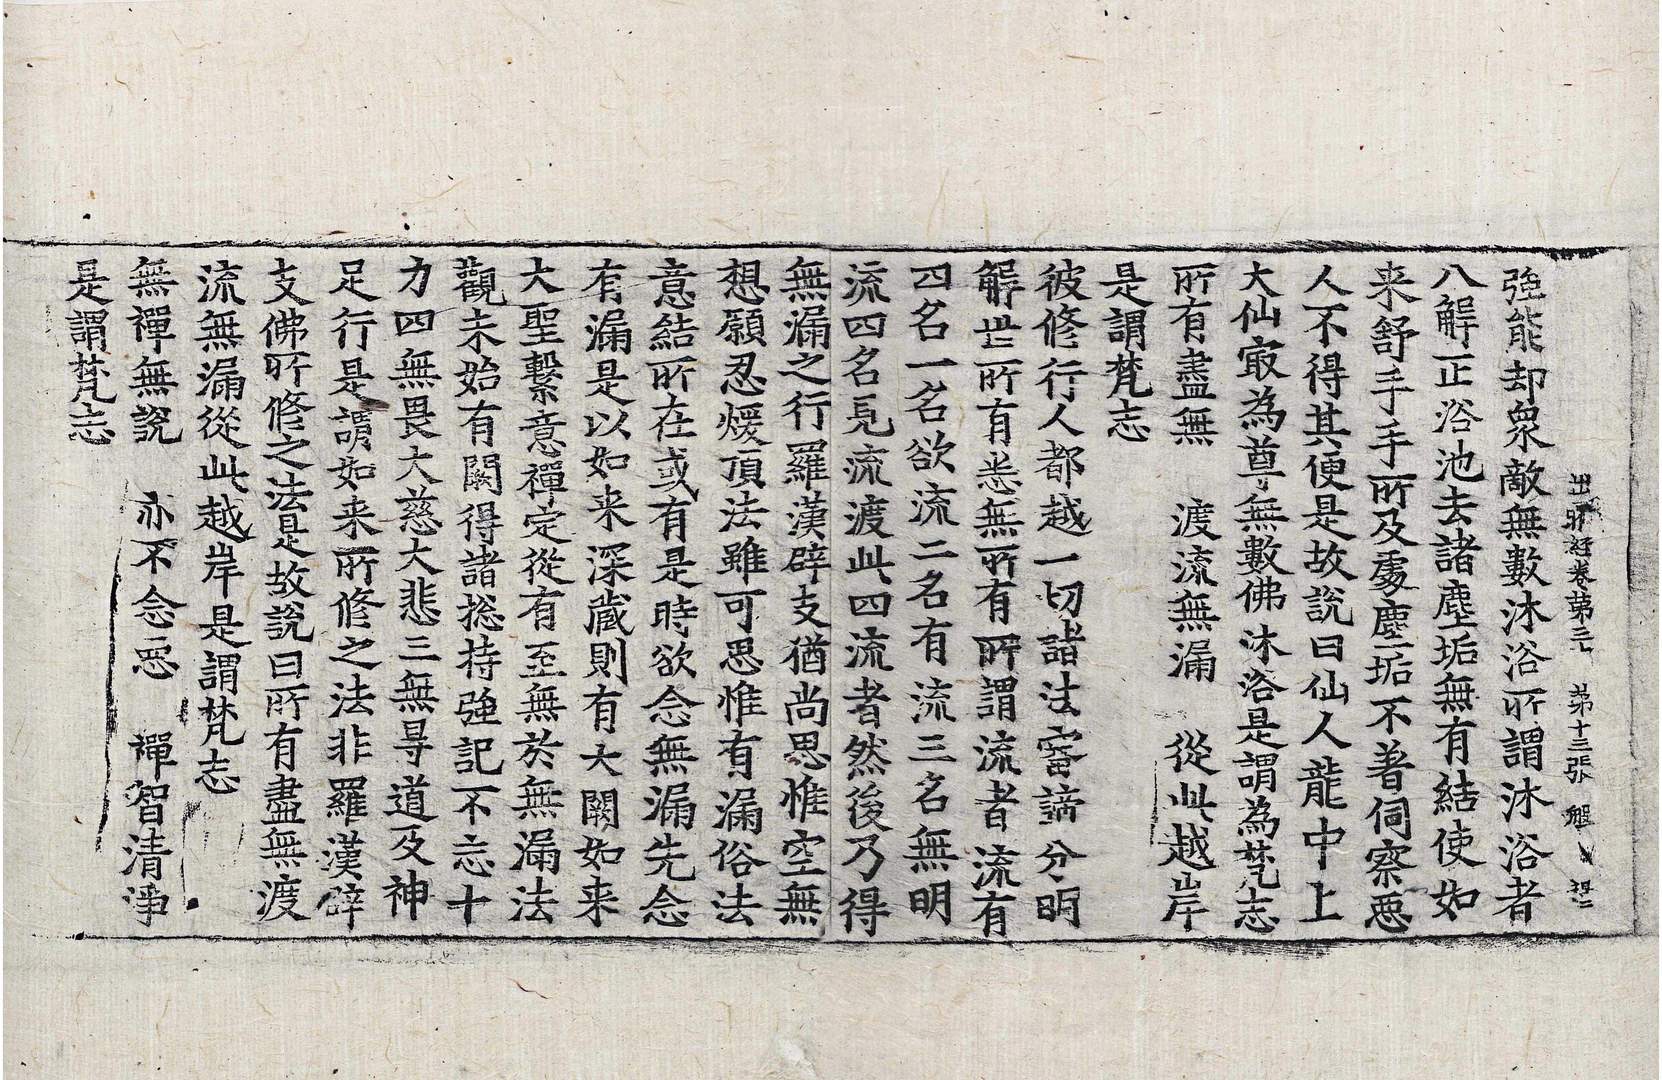 出曜経卷第三十 第十三張
強能却衆敵無數沐浴所謂沐浴者
八解正浴池去諸塵垢無有結使如
来舒手手所及處塵垢不著伺察惡
人不得其便是故說曰仙人龍中上
大仙㝡為尊無數佛沐浴是謂為梵志
所有盡無 渡流無漏 從此越岸
是謂梵志
彼修行人都越一切諸法審諦分明
解世所有悉無所有所謂流者流有
四名一名欲流二名有流三名無明
流四名見流渡此四流者然後乃得
無漏之行羅漢辟支猶尚思惟空無
想願忍煖頂法雖可思惟有漏俗法
意結所在或有是時欲念無漏先念
有漏是以如来深藏則有大闕如来
大聖繫意禪定從有至無於無漏法
觀未始有闕得諸捴持強記不忘十
力四無畏大慈大悲三無㝵道及神
足行是謂如来所修之法非羅漢辟
支佛所修之法是故說曰所有盡無渡
流無漏從此越岸是謂梵志
無禪無說 亦不念惡 禪智清淨
是謂梵志